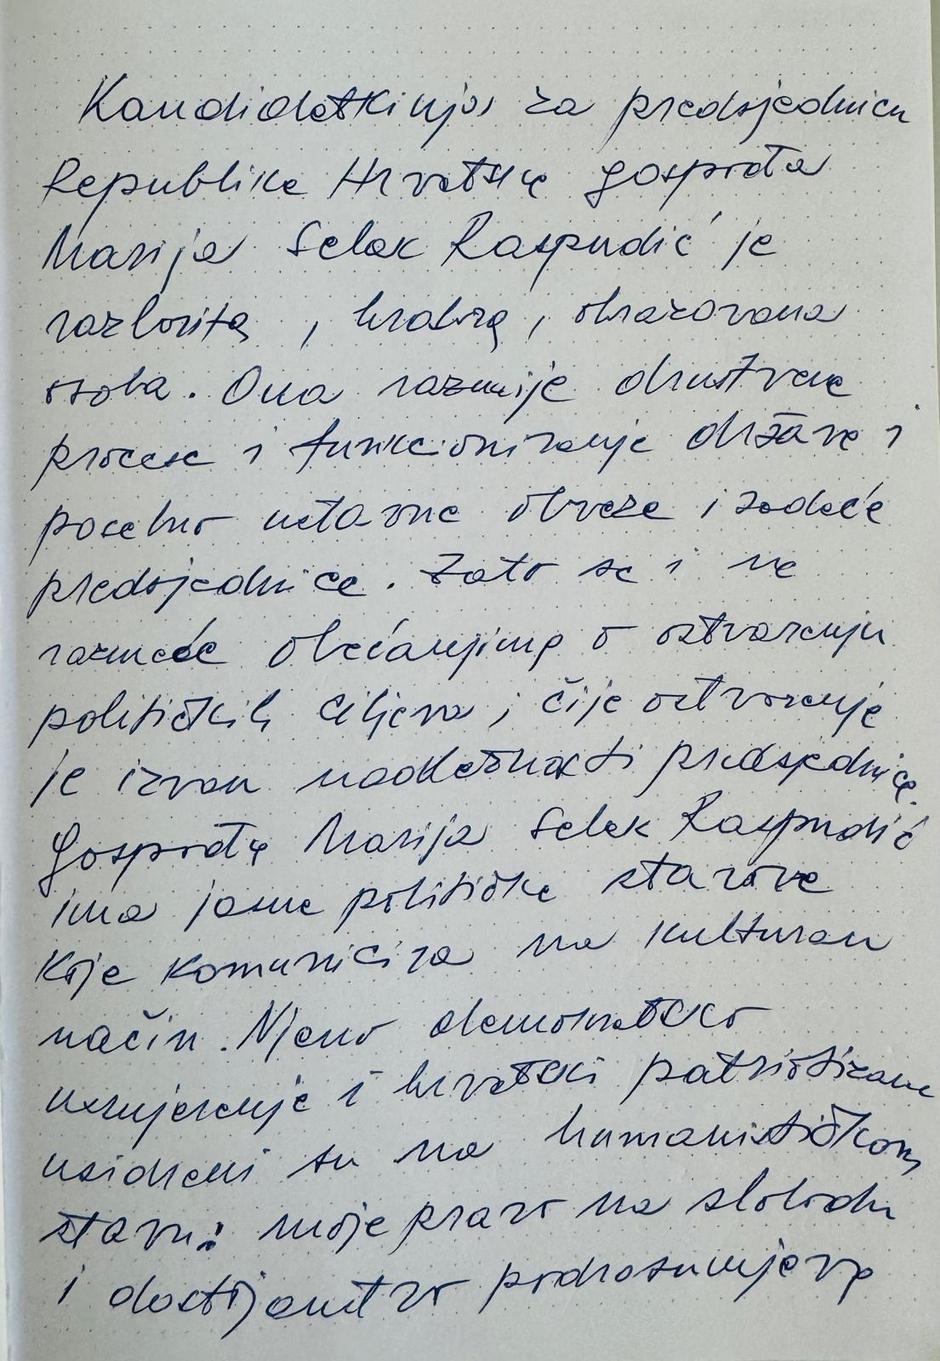 Kandidatkinja za predsjednicu
Republike Hrvatske gospođa
Marija Selak Raspudić je
razborita, hrabra, obrazovana
osoba. Ona razumije društvene
procese i funkcioniranje države i
posebno ustavne obveze i zadaće
predsjednice. Zato se i ne
razmeće obećanjima o ostvarenju
političkih ciljeva, čije ostvarenje
je izvan nadležnosti predsjednice.
Gospođa Marija Selak Raspudić
ima jasne političke stavove
koje komunicira na kulturan
način. Njeno demokratsko
usmjerenje i hrvatski patriotizam
usidreni su na humanističkom
stavu: moje pravo na slobodu
i dostojanstvo podrazumijeva